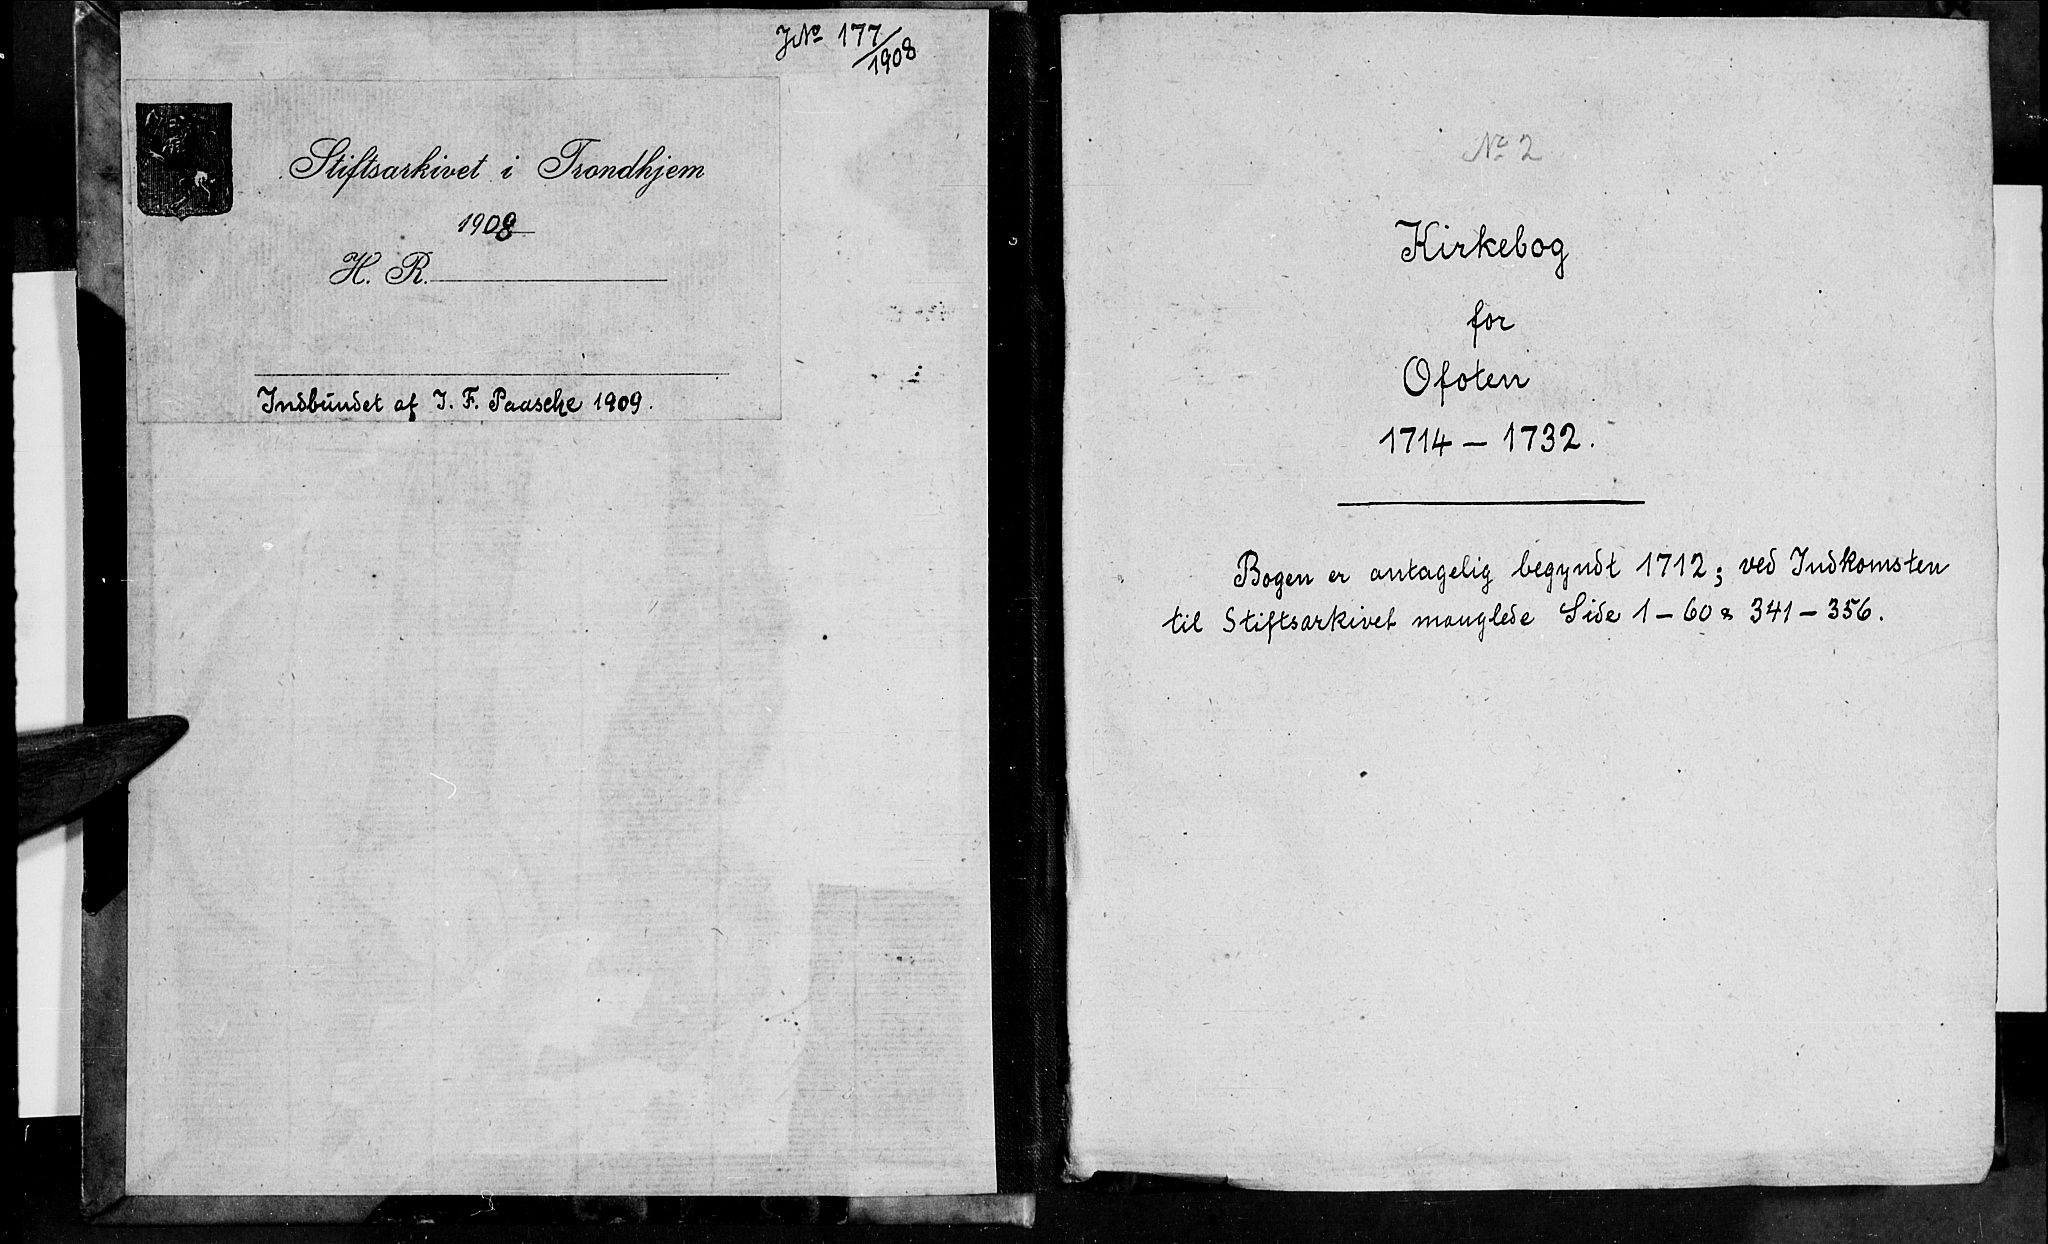 JNo 177/1908
Stiftsarkivet i Trondhjem
1908
H. R.
Indbundet af J. F. Paasche 1909.
No 2
Kirkebog
for
Ofoten
1714 – 1732.
Bogen er antagelig begyndt 1712; ved Indkomsten
til Stiftsarkivet manglede Side 1–60 & 341–356.